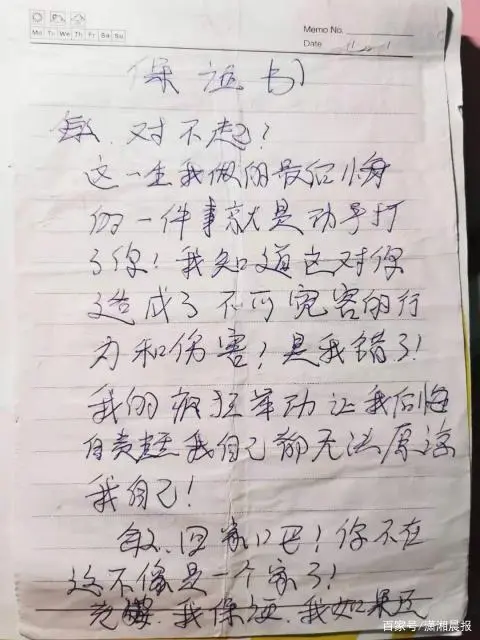 Mo Tu We Th Fr Sa Su
Memo No.
Date
保证书
敏、对不起！
这一生我做的最后悔
的一件事就是动手打
了你！我知道这对你
造成了不可宽容的行
为和伤害！是我错了！
我的疯狂举动让我后悔
自责 我自己都无法原谅
我自己！
敏、回家吧！你不在
这不像是一个家了！
我保证、我如果还
百家号/潇湘晨报